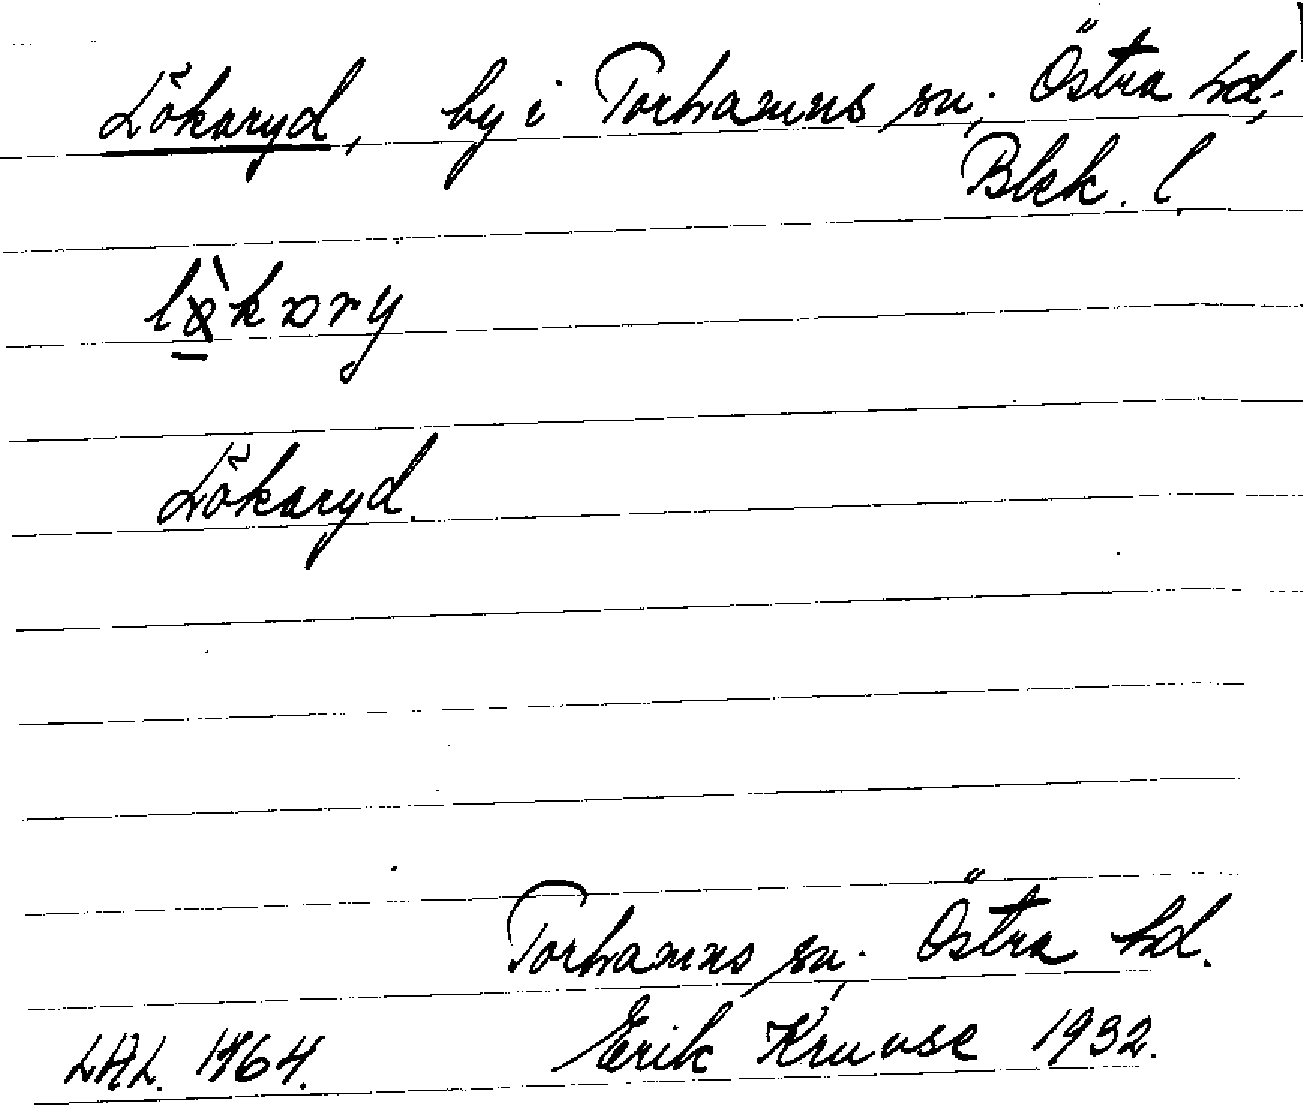 Lökaryd, by i Torhamns sn, Östra hd,
Blek. l.
lø̀kɒry
Lökaryd.
Torhamns sn. Östra hd.
LAL. 1964. Erik Kruuse 1932.